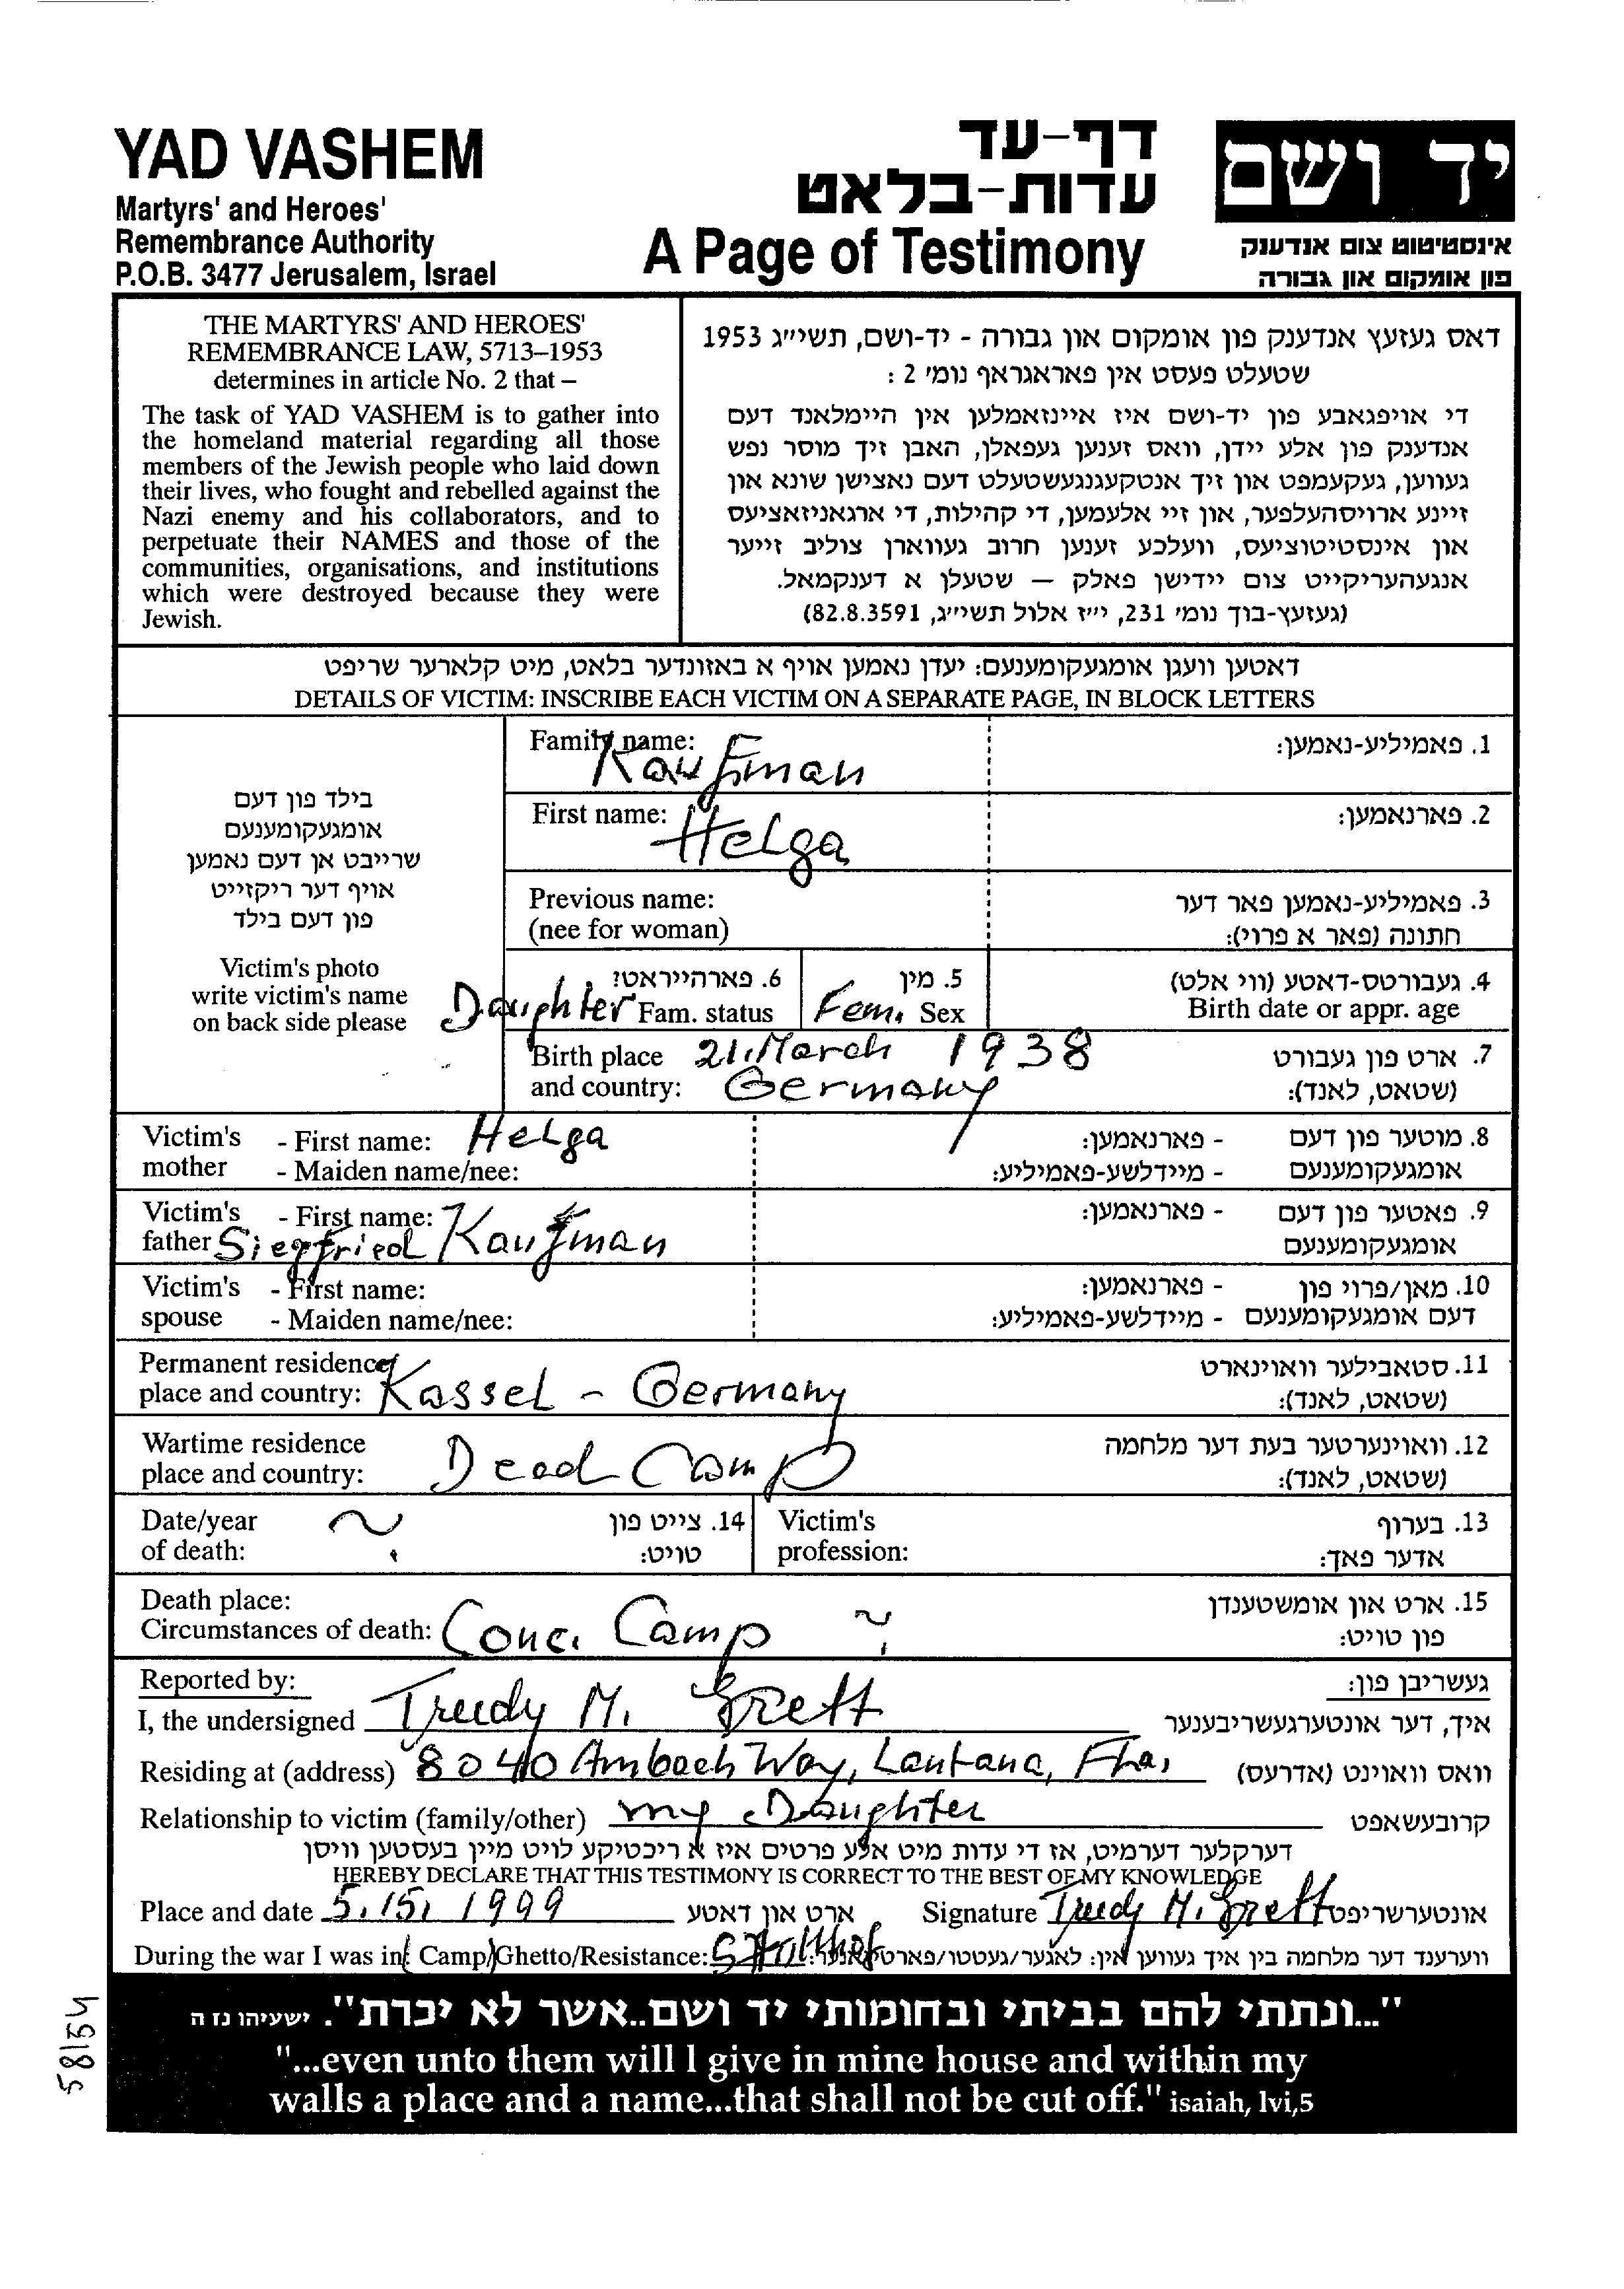 YAD VASHEM
Martyrs' and Heroes'
Remembrance Authority
P.O.B. 3477 Jerusalem, Israel
דף-עד
עדות-בלאט
A Page of Testimony
יד ושם
אינסטיטוט צום אנדענק
פון אומקום און גבורה
THE MARTYRS' AND HEROES'
REMEMBRANCE LAW, 5713–1953
determines in article No. 2 that –
The task of YAD VASHEM is to gather into
the homeland material regarding all those
members of the Jewish people who laid down
their lives, who fought and rebelled against the
Nazi enemy and his collaborators, and to
perpetuate their NAMES and those of the
communities, organisations, and institutions
which were destroyed because they were
Jewish.
דאס געזעץ אנדענק פון אומקום און גבורה - יד-ושם, תשי״ג 1953
שטעלט פעסט אין פאראגראף נומ׳ 2 :
די אויפגאבע פון יד-ושם איז איינזאמלען אין היימלאנד דעם
אנדענק פון אלע יידן, וואס זענען געפאלן, האבן זיך מוסר נפש
געווען, געקעמפט און זיך אנטקעגנגעשטעלט דעם נאצישן שונא און
זיינע ארויסהעלפער, און זיי אלעמען, די קהילות, די ארגאניזאציעס
און אינסטיטוציעס, וועלכע זענען חרוב געווארן צוליב זייער
אנגעהעריקייט צום יידישן פאלק — שטעלן א דענקמאל.
(געזעץ-בוך נומ׳ 231, י״ז אלול תשי״ג, 82.8.3591)
דאטען וועגן אומגעקומענעם: יעדן נאמען אויף א באזונדער בלאט, מיט קלארער שריפט
DETAILS OF VICTIM: INSCRIBE EACH VICTIM ON A SEPARATE PAGE, IN BLOCK LETTERS
בילד פון דעם
אומגעקומענעם
שרייבט אן דעם נאמען
אויף דער ריקזייט
פון דעם בילד
Victim's photo
write victim's name
on back side please
Family name: Kaufman 1. פאמיליע-נאמען:
First name: Helga 2. פארנאמען:
Previous name: 3. פאמיליע-נאמען פאר דער
(nee for woman) חתונה (פאר א פרוי):
6. פארהייראט?: 5. מין 4. געבורטס-דאטע (ווי אלט)
Daughter Fam. status Fem. Sex Birth date or appr. age
Birth place 21. March 1938 7. ארט פון געבורט
and country: Germany (שטאט, לאנד):
Victim's - First name: Helga 8. מוטער פון דעם - פארנאמען:
mother - Maiden name/nee: אומגעקומענעם - מיידלשע-פאמיליע:
Victim's - First name: Kaufman 9. פאטער פון דעם - פארנאמען:
father Siegfried אומגעקומענעם
Victim's - First name: 10. מאן/פרוי פון - פארנאמען:
spouse - Maiden name/nee: דעם אומגעקומענעם - מיידלשע-פאמיליע:
Permanent residence 11. סטאבילער וואוינארט
place and country: Kassel - Germany (שטאט, לאנד):
Wartime residence 12. וואוינערטער בעת דער מלחמה
place and country: Dead Camp (שטאט, לאנד):
Date/year ? 14. צייט פון Victim's 13. בערוף
of death: טויט: profession: אדער פאך:
Death place: 15. ארט און אומשטענדן
Circumstances of death: Conc. Camp ? פון טויט:
Reported by: געשריבן פון:
I, the undersigned Trudy M. Grett איך, דער אונטערגעשריבענער
Residing at (address) 8040 Ambach Way, Lantana, Fla. וואס וואוינט (אדרעס)
Relationship to victim (family/other) my Daughter קרובעשאפט
דערקלער דערמיט, אז די עדות מיט אלע פרטים איז א ריכטיקע לויט מיין בעסטען וויסן
HEREBY DECLARE THAT THIS TESTIMONY IS CORRECT TO THE BEST OF MY KNOWLEDGE
Place and date 5.15.1999 ארט און דאטע Signature Trudy M. Grett אונטערשריפט
During the war I was in: Camp/Ghetto/Resistance: Stutthof ווערענד דער מלחמה בין איך געווען אין: לאגער/געטטו/פארטיזאנער:
"...ונתתי להם בביתי ובחומותי יד ושם..אשר לא יכרת". ישעיהו נז ה
"...even unto them will I give in mine house and within my
walls a place and a name...that shall not be cut off." isaiah, lvi,5
58154